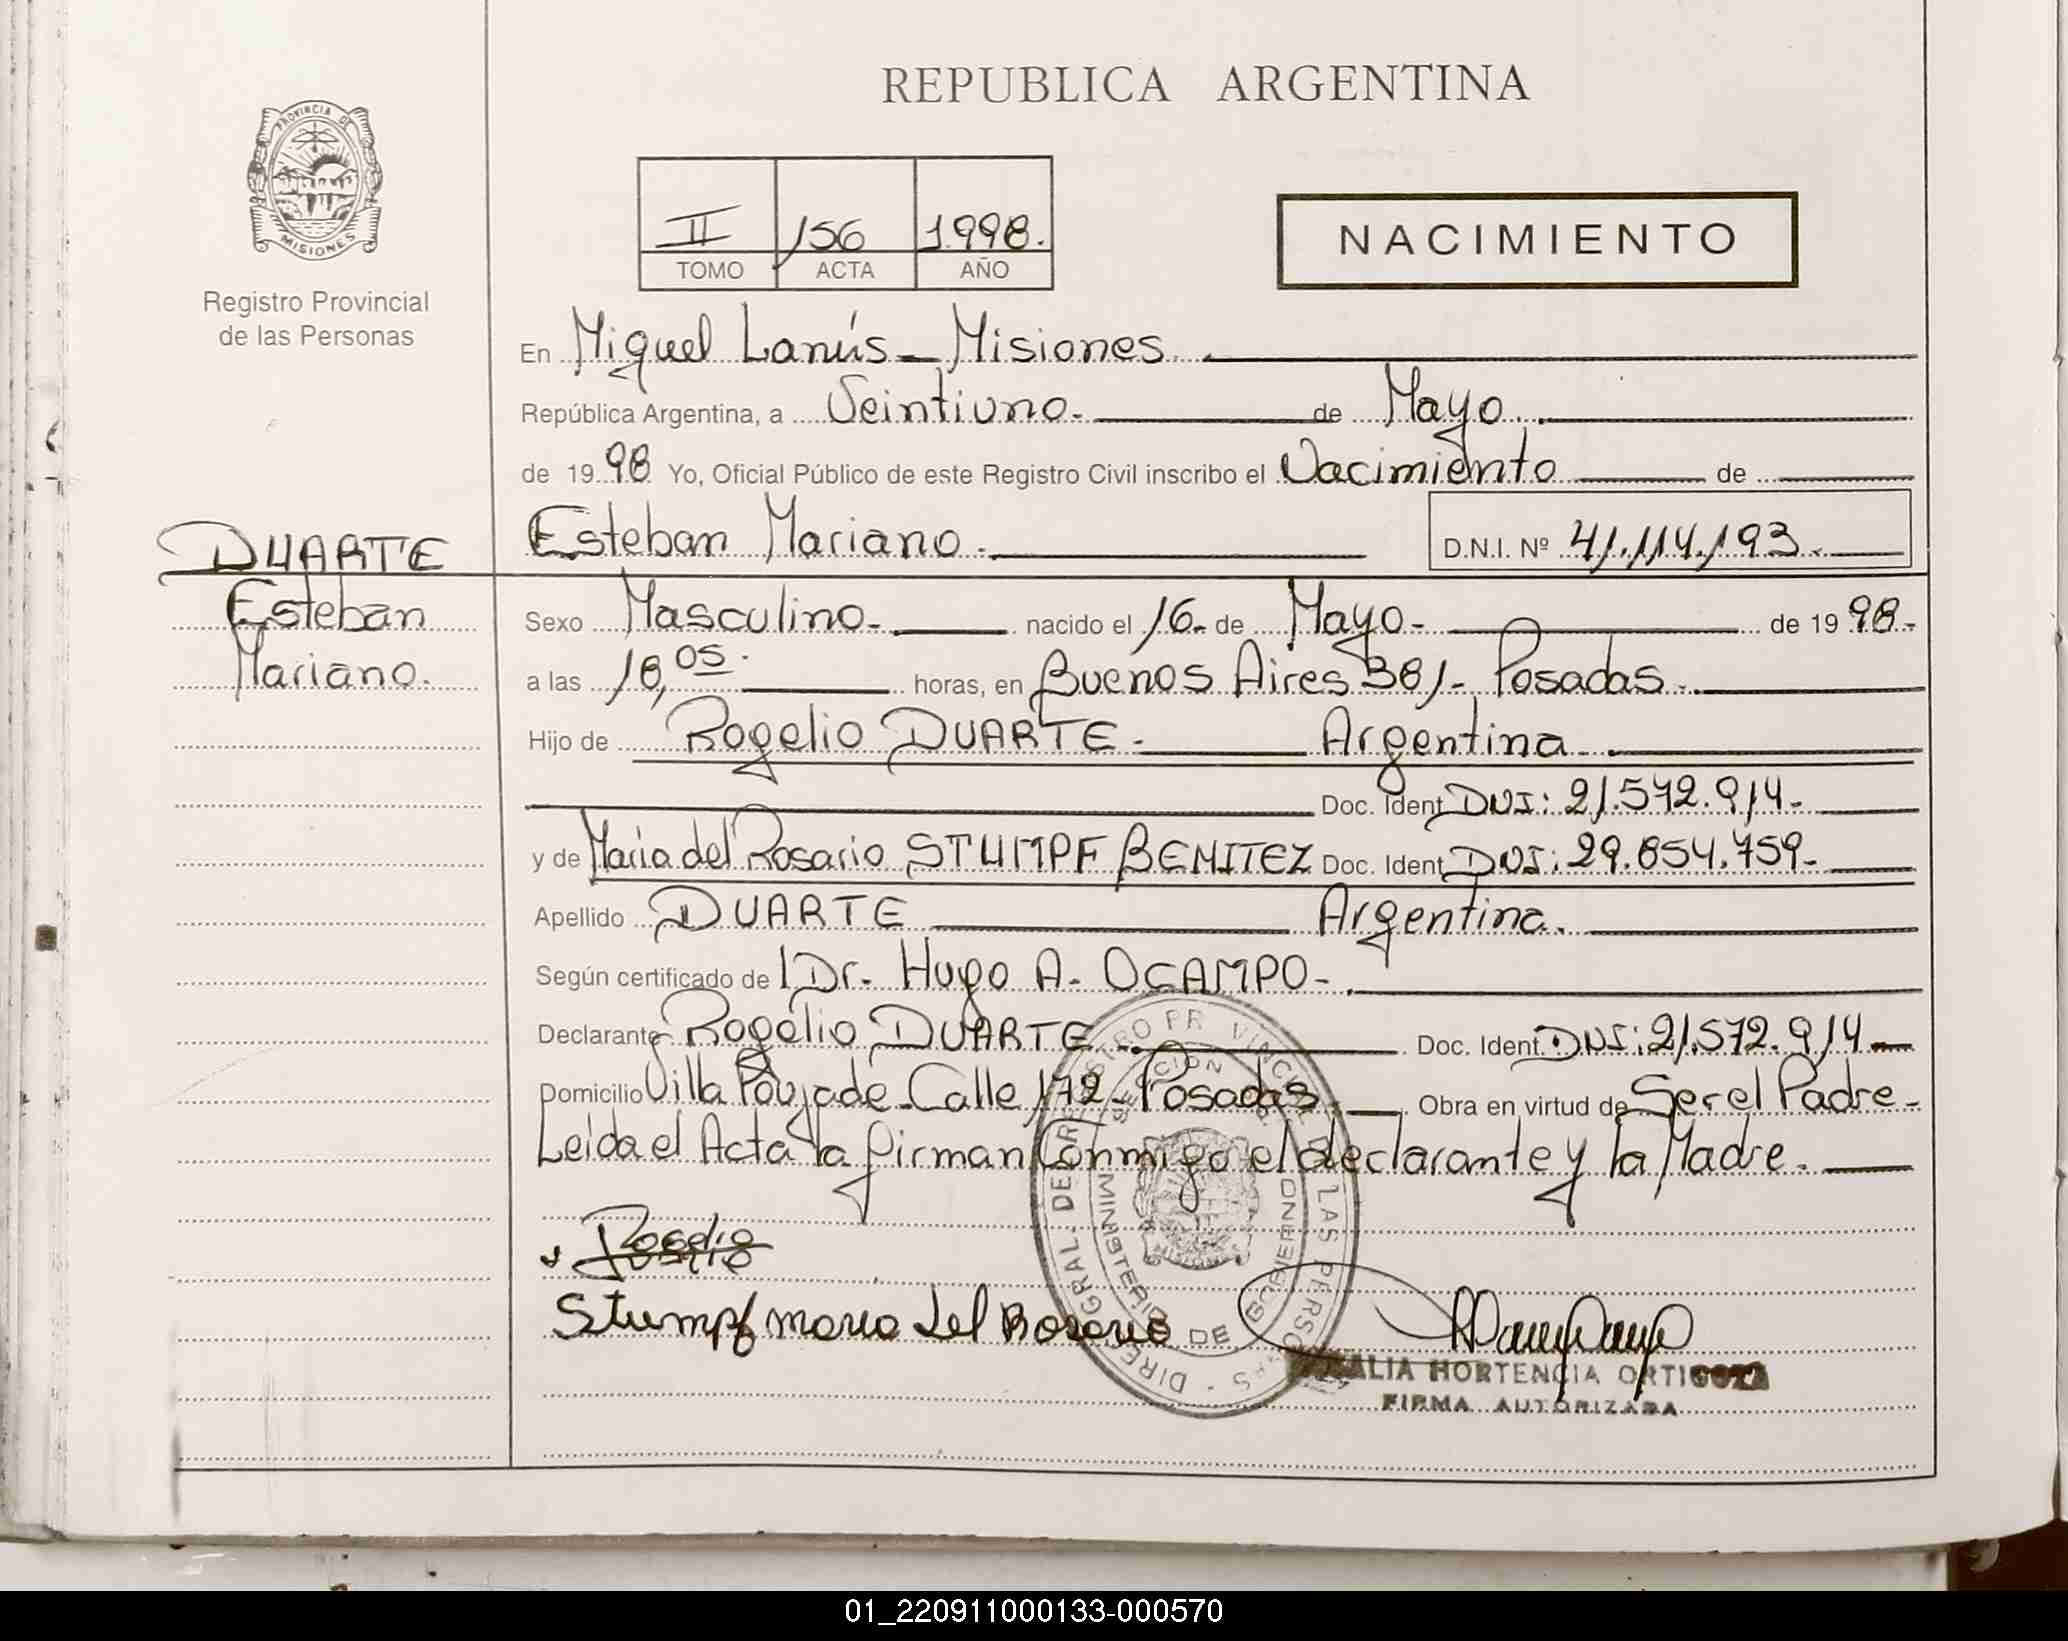 REPUBLICA ARGENTINA
PROVINCIA DE
MISIONES
Registro Provincial
de las Personas
II 156 1998.
TOMO ACTA AÑO
NACIMIENTO
En Miguel Lanús - Misiones
República Argentina, a Veintiuno. de Mayo
de 1998 Yo, Oficial Público de este Registro Civil inscribo el Nacimiento de
DUARTE
Esteban
Mariano.
Esteban Mariano. D.N.I. Nº 41.114.193.
Sexo Masculino. nacido el 16. de Mayo - de 1998.
a las 18,05. horas, en Buenos Aires 381 - Posadas.
Hijo de Rogelio DUARTE - Argentina.
Doc. Ident. DNI: 21.572.914.
y de María del Rosario STUMPF BENITEZ Doc. Ident. DNI: 29.854.759.
Apellido DUARTE Argentina.
Según certificado de Dr. Hugo A. OCAMPO -
Declarante Rogelio DUARTE Doc. Ident. DNI: 21.572.914
Domicilio Villa Poujade - Calle 172 - Posadas Obra en virtud de Ser el Padre -
Leída el Acta la firman Conmigo el declarante y la Madre.
Rogelio
Stumpf maria del Rosario
DIREC GRAL. DE REGISTRO PROVINCIAL DE LAS PERSONAS
MINISTERIO DE GOBIERNO
MISIONES
ALIA HORTENCIA ORTIGOZA
FIRMA AUTORIZADA
01_220911000133-000570